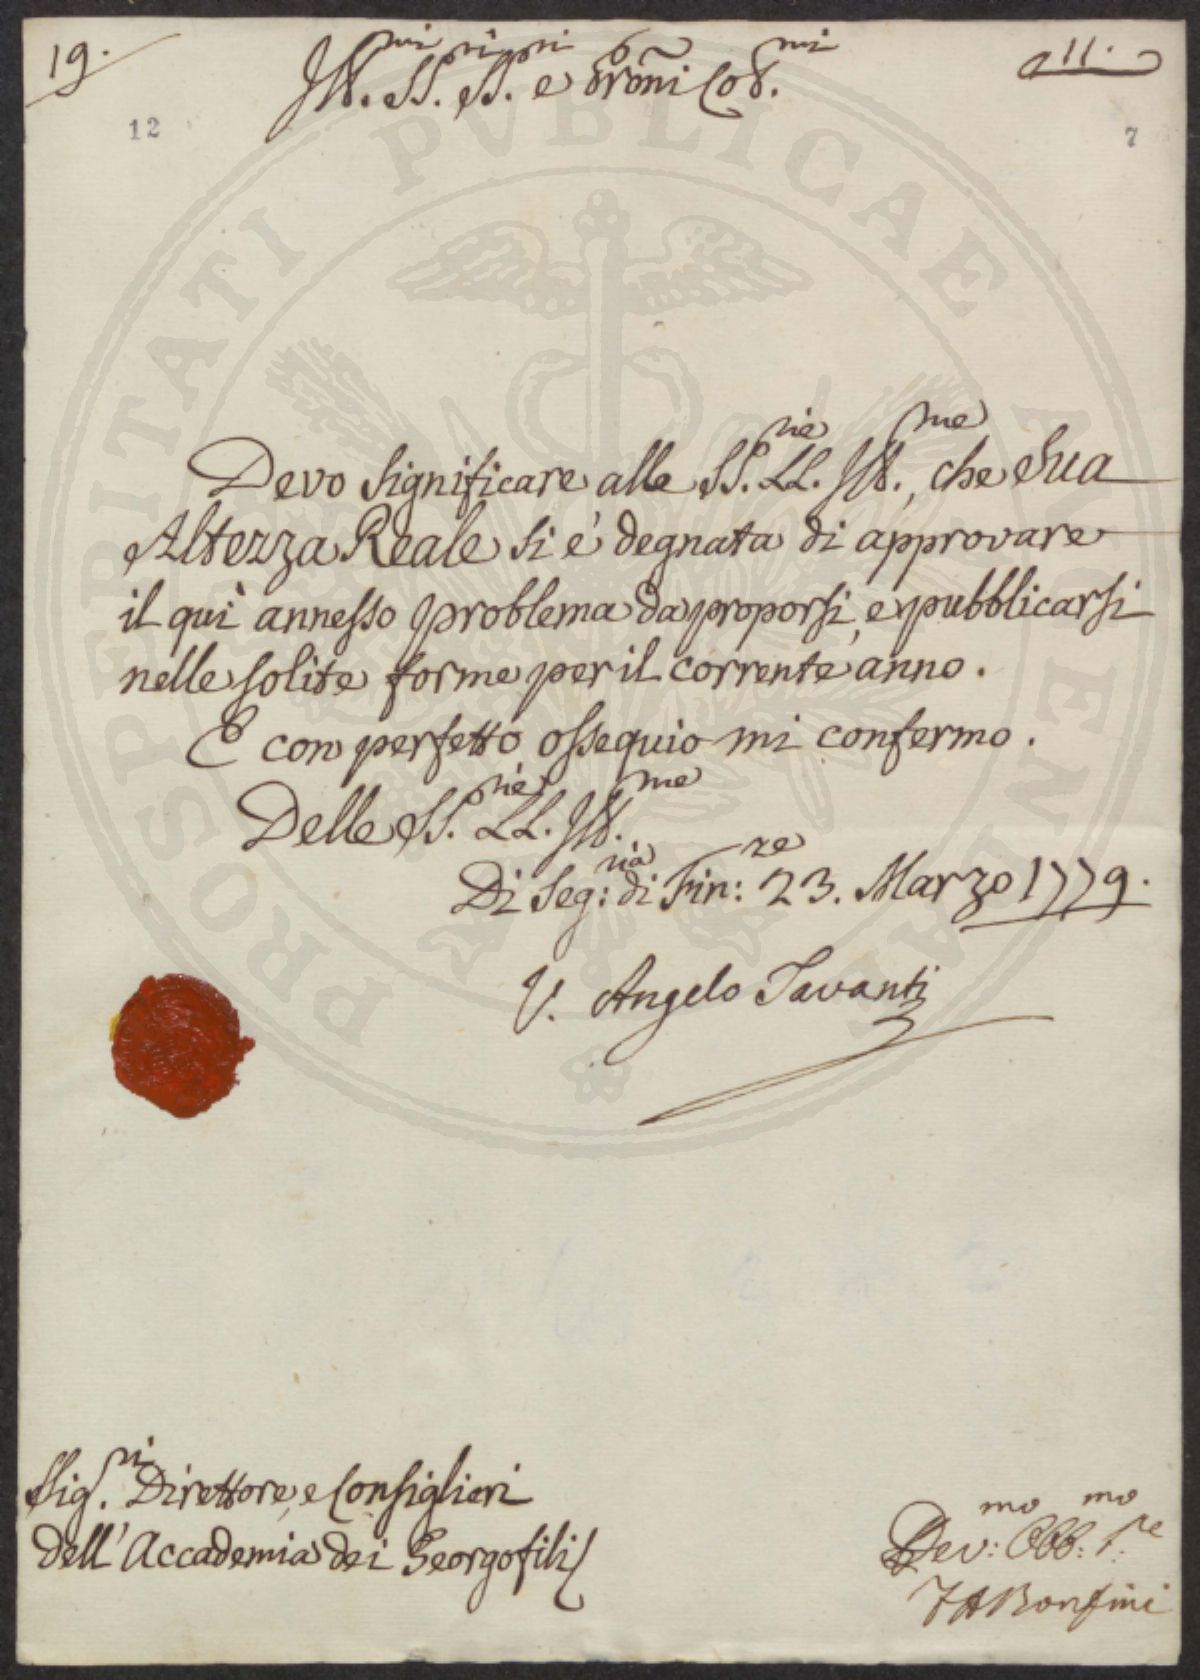 19.
11.
Ill.mi SS.ri SS.ri e Proñi Col.mi
12
7
Devo significare alle SS.rie LL. Ill.me, che Sua
Altezza Reale si è degnata di approvare
il quì annesso problema da proporsi, e pubblicarsi
nelle solite forme per il corrente anno.
E con perfetto ossequio mi confermo.
Delle SS.rie LL. Ill.me
Di Seg:ria di Fin:ze 23. Marzo 1779.
V. Angelo Tavanti
Sig.ri Direttore, e Consiglieri
dell'Accademia dei Georgofili
Dev:mo Obb:mo S:re
PROSPERITATI PVBLICAE AVGENDAE